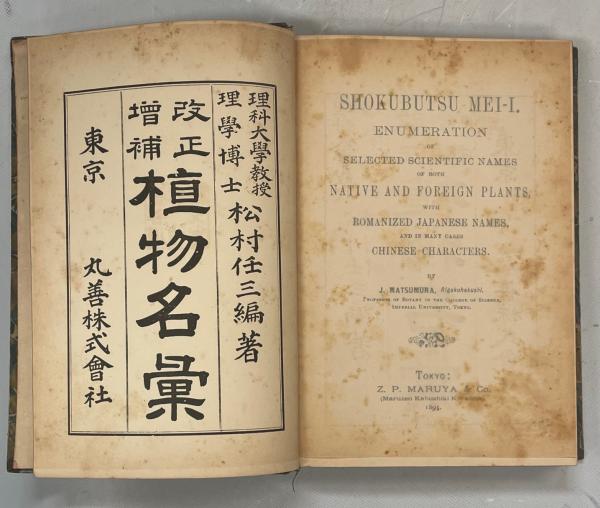 理科大學教授
理學博士 松村任三編著
改正
增補
植物名彙
東京 丸善株式會社
SHOKUBUTSU MEI-I.
ENUMERATION
OF
SELECTED SCIENTIFIC NAMES
OF BOTH
NATIVE AND FOREIGN PLANTS,
WITH
ROMANIZED JAPANESE NAMES,
AND IN MANY CASES
CHINESE CHARACTERS.
BY
J. MATSUMURA, Rigakuhakushi,
PROFESSOR OF BOTANY IN THE COLLEGE OF SCIENCE,
IMPERIAL UNIVERSITY, TOKYO.
TOKYO:
Z. P. MARUYA & Co.
(Maruzen Kabushiki Kwaisha)
1895.